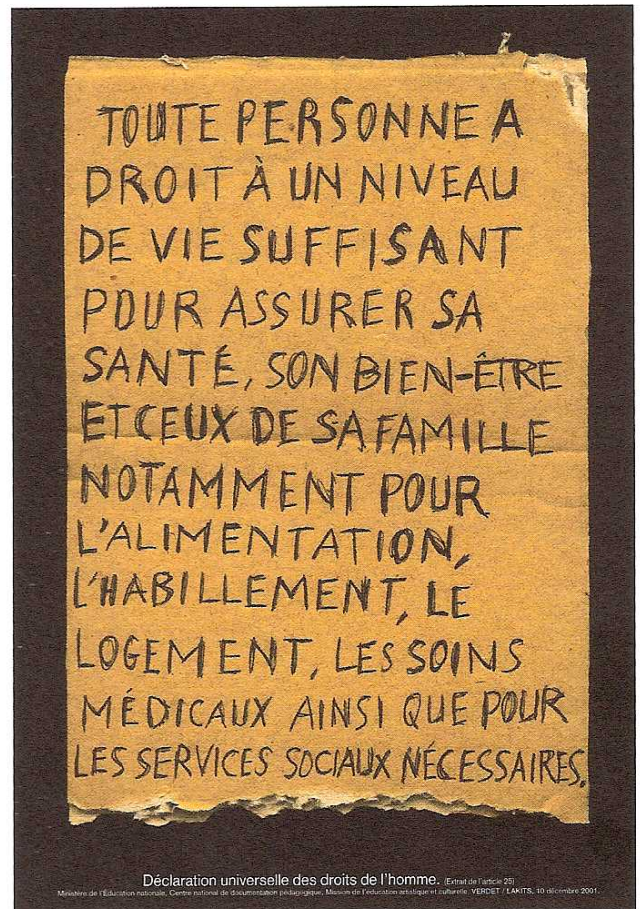 TOUTE PERSONNE A
DROIT À UN NIVEAU
DE VIE SUFFISANT
POUR ASSURER SA
SANTÉ, SON BIEN-ÊTRE
ET CEUX DE SA FAMILLE
NOTAMMENT POUR
L'ALIMENTATION,
L'HABILLEMENT, LE
LOGEMENT, LES SOINS
MÉDICAUX AINSI QUE POUR
LES SERVICES SOCIAUX NÉCESSAIRES.
Déclaration universelle des droits de l'homme. (Extrait de l'article 25)
Ministère de l'Éducation nationale, Centre national de documentation pédagogique, Mission de l'éducation artistique et culturelle. VERDET / LAKITS, 10 décembre 2001.